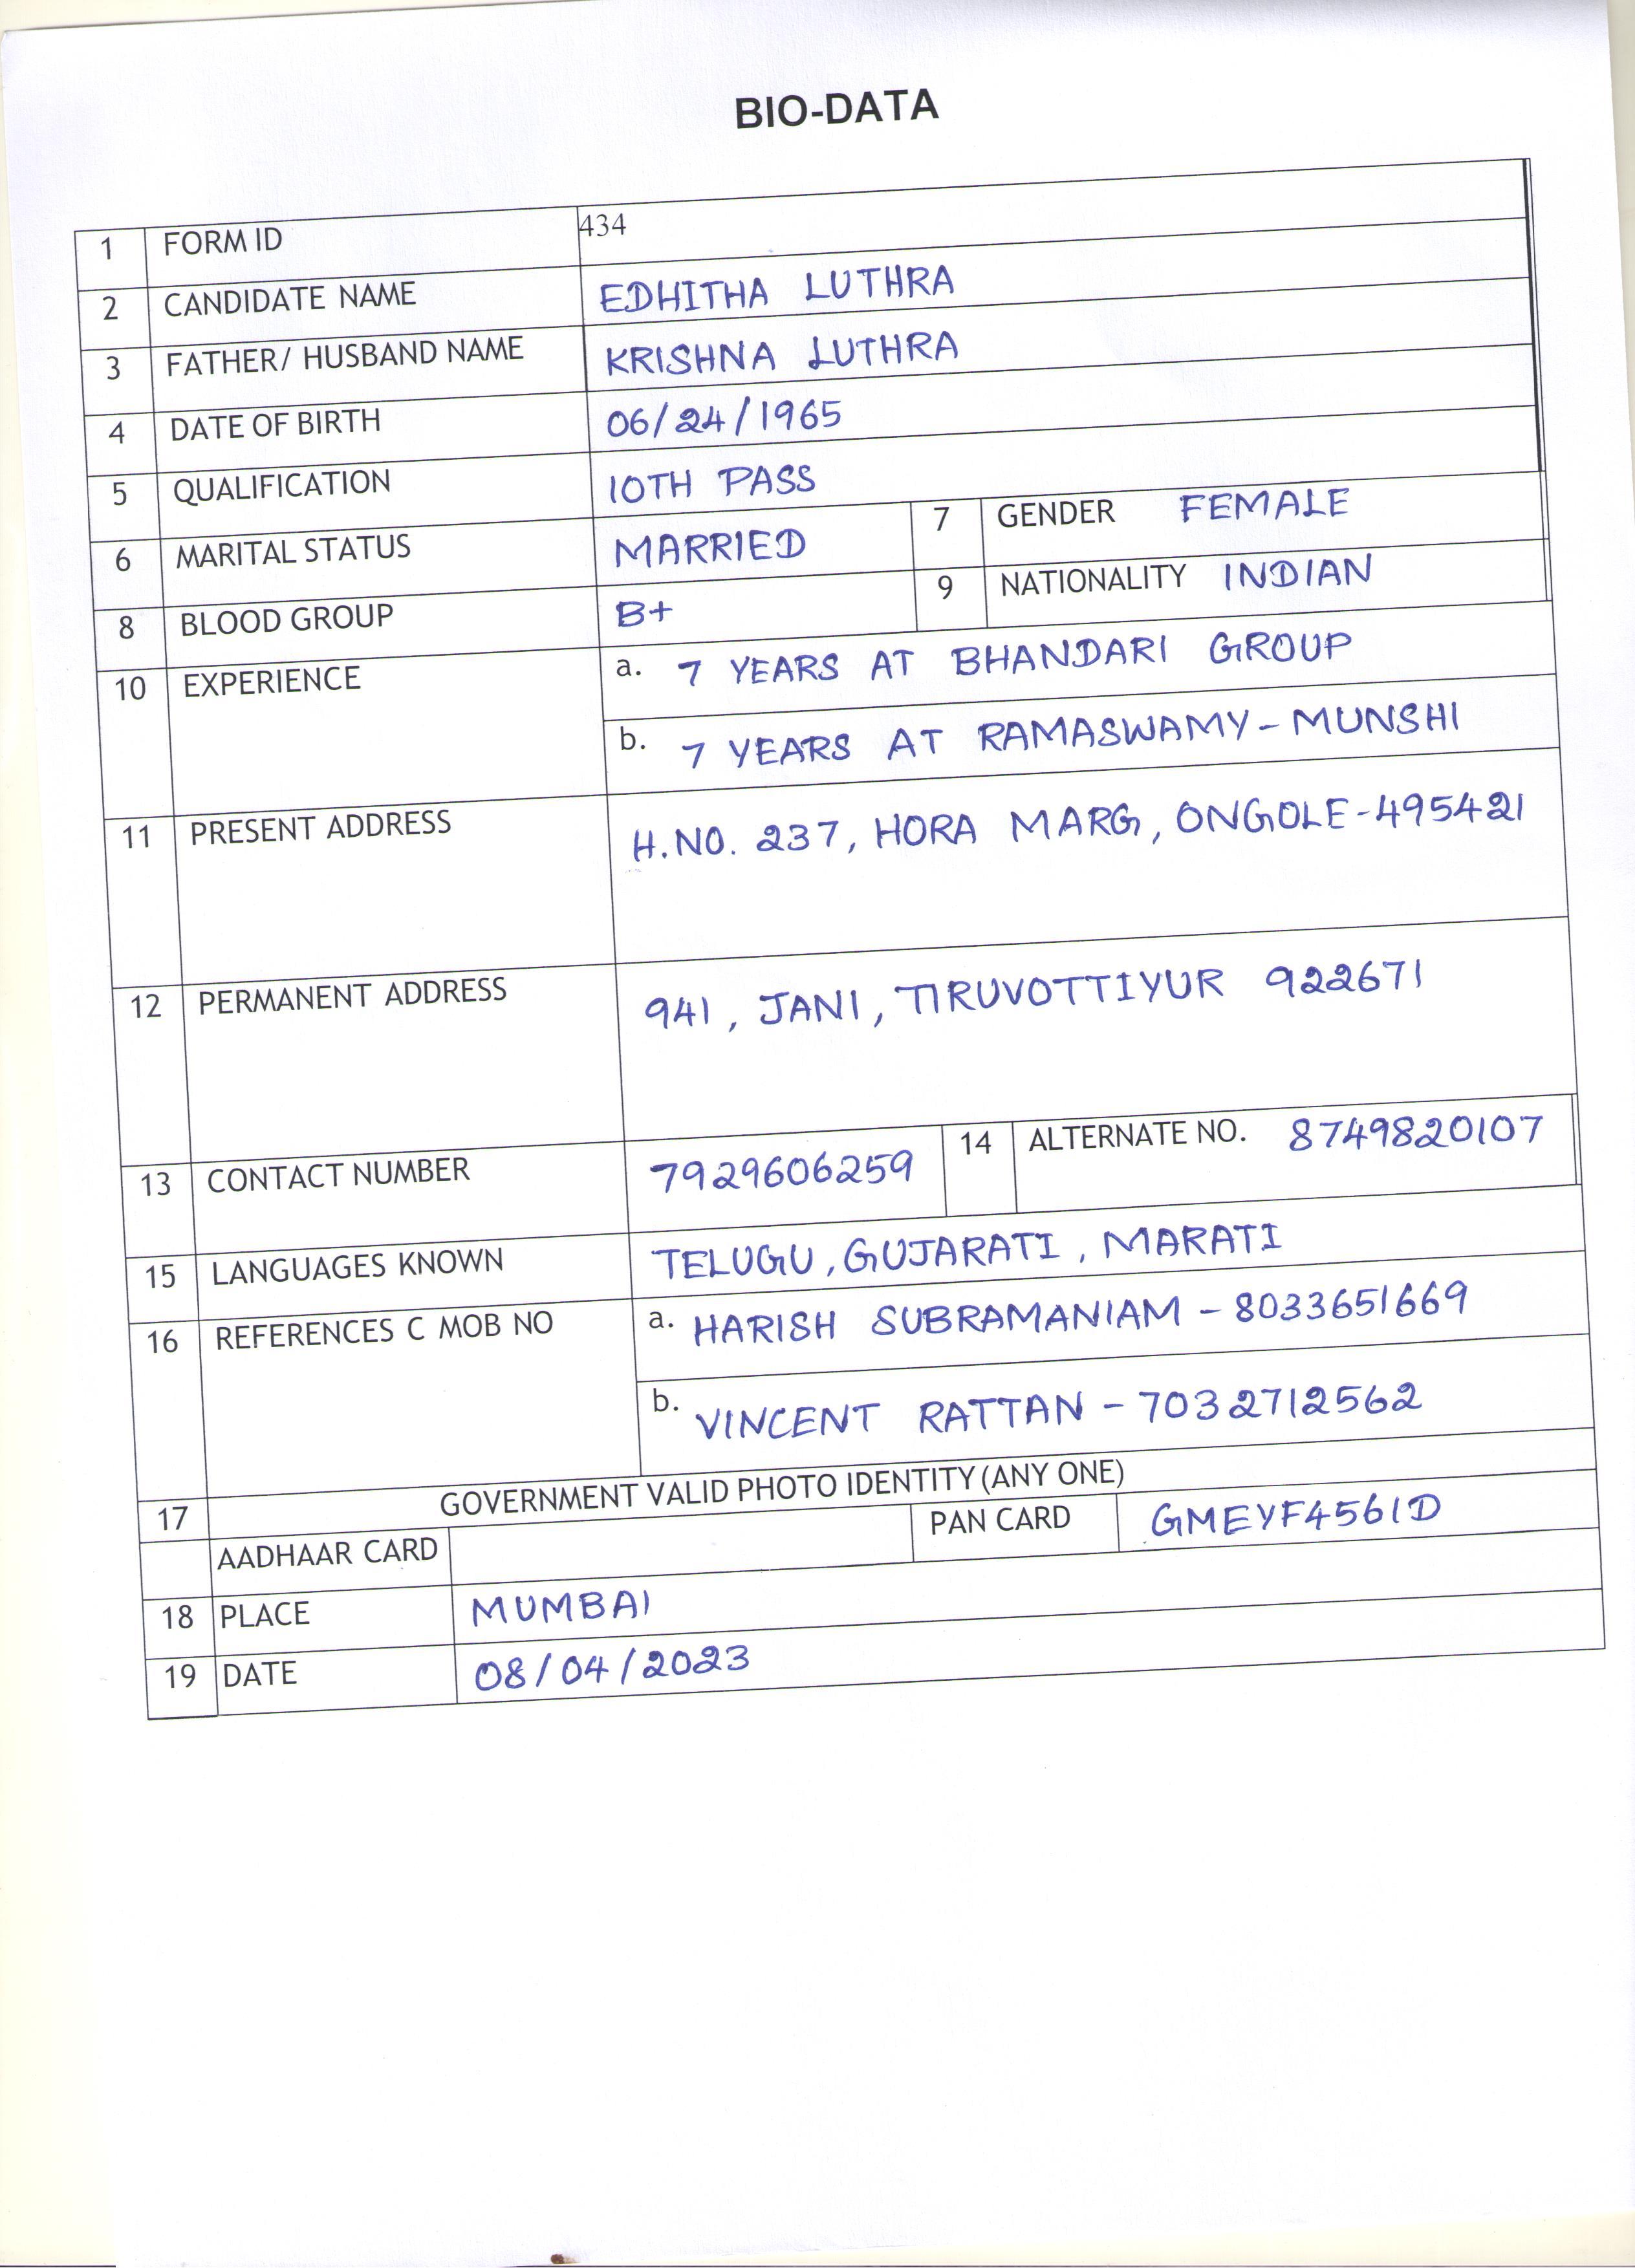 BIO-DATA
1 FORM ID 434
2 CANDIDATE NAME EDHITHA LUTHRA
3 FATHER/ HUSBAND NAME KRISHNA LUTHRA
4 DATE OF BIRTH 06/24/1965
5 QUALIFICATION 10TH PASS
6 MARITAL STATUS MARRIED 7 GENDER FEMALE
8 BLOOD GROUP B+ 9 NATIONALITY INDIAN
10 EXPERIENCE a. 7 YEARS AT BHANDARI GROUP
b. 7 YEARS AT RAMASWAMY-MUNSHI
11 PRESENT ADDRESS H.NO. 237, HORA MARG, ONGOLE-495421
12 PERMANENT ADDRESS 941, JANI, TIRUVOTTIYUR 922671
13 CONTACT NUMBER 7929606259 14 ALTERNATE NO. 8749820107
15 LANGUAGES KNOWN TELUGU, GUJARATI, MARATI
16 REFERENCES C MOB NO a. HARISH SUBRAMANIAM - 8033651669
b. VINCENT RATTAN - 7032712562
17 GOVERNMENT VALID PHOTO IDENTITY (ANY ONE)
AADHAAR CARD PAN CARD GMEYF4561D
18 PLACE MUMBAI
19 DATE 08/04/2023